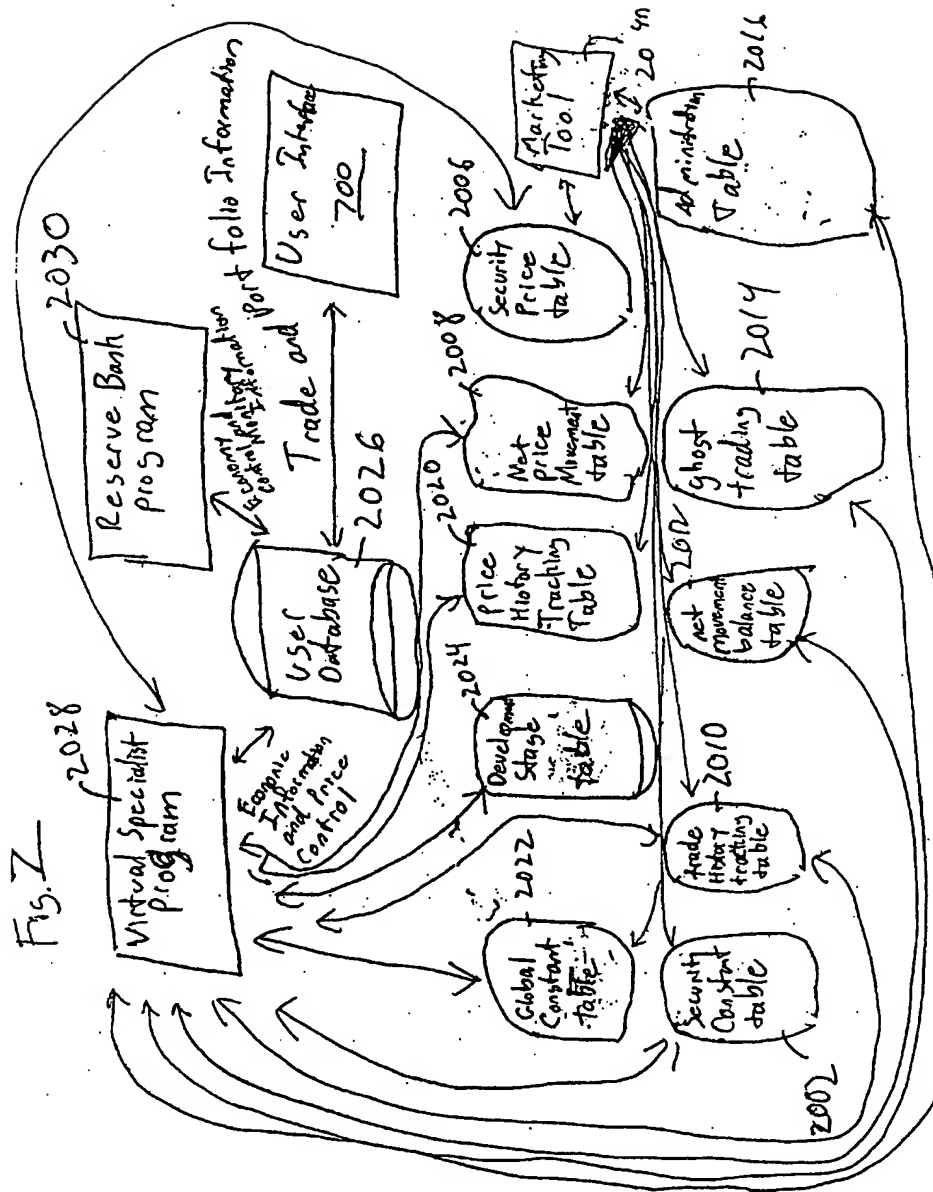 Fig. 2
Virtual Specialist
Program
2028
Reserve Bank
program
2030
Economy and monitary
control information
Trade and Portfolio Information
User Interface
700
User
Database
2026
Economic
Information
and Price
Control
Global
Constant
table
2022
Development
Stage
table
2024
Price
History
Tracking
Table
2020
Net
price
Movement
table
2008
Security
Price
table
2006
Marketing
Tool
Security
Constant
table
2002
trade
History
tracking
table
2010
net
movement
balance
table
2012
ghost
trading
table
2014
Administration
Table
...
2016